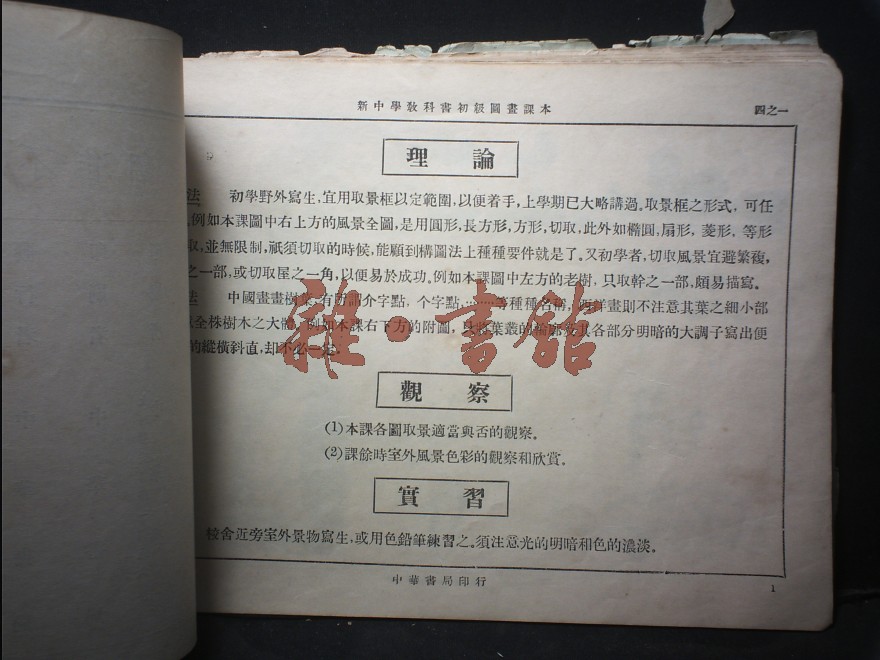 新中學敎科書初級圖畫課本
四之一
理 論
法 初學野外寫生,宜用取景框以定範圍,以便着手,上學期已大略講過。取景框之形式,可任
例如本課圖中右上方的風景全圖,是用圓形,長方形,方形,切取,此外如橢圓,扇形,菱形、等形
取,並無限制,祇須切取的時候,能顧到構圖法上種種要件就是了。又初學者,切取風景宜避繁複,
之一部,或切取屋之一角,以便易於成功。例如本課圖中左方的老樹,只取幹之一部,頗易描寫。
法 中國畫畫樹葉,有所謂介字點,个字點,……等種種名稱,西洋畫則不注意其葉之細小部
全株樹木之大體,例如本課右下方的附圖,只將葉叢的輪廓及其各部分明暗的大調子寫出便
的縱橫斜直,却不必一定。
雜·書館
觀 察
(1)本課各圖取景適當與否的觀察。
(2)課餘時室外風景色彩的觀察和欣賞。
實 習
校舍近旁室外景物寫生,或用色鉛筆練習之。須注意光的明暗和色的濃淡。
中華書局印行
1